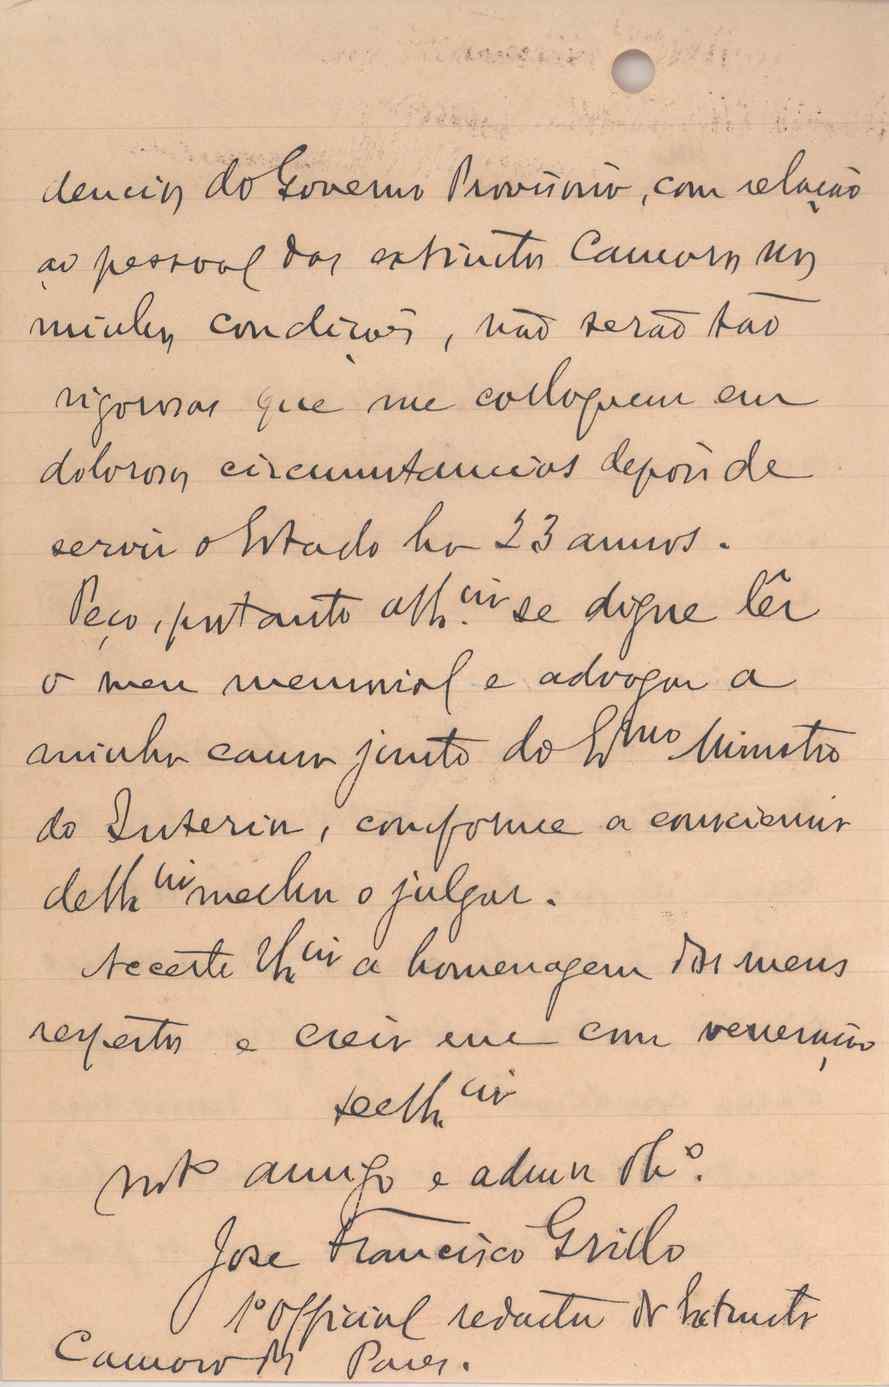 dencias do Governo Provisorio, com relação
ao pessoal das extinctas Camaras nas
minhas condições, não serão tão
rigorosas que me colloquem em
dolorosas circumstancias depois de
servir o Estado ha 23 annos.
Peço, portanto a V. Ex.cia se digne lêr
o meu memorial e advogar a
minha causa junto do Ex.mo Ministro
do Interior, conforme a consciencia
de V. Ex.cia melhor o julgar.
Acceite V. Ex.cia a homenagem dos meus
respeitos e creia me com veneração
de V. Ex.cia
mto amigo e admor obo.
Jose Francisco Grillo
1º Official redactor da extincta
Camara dos Pares.